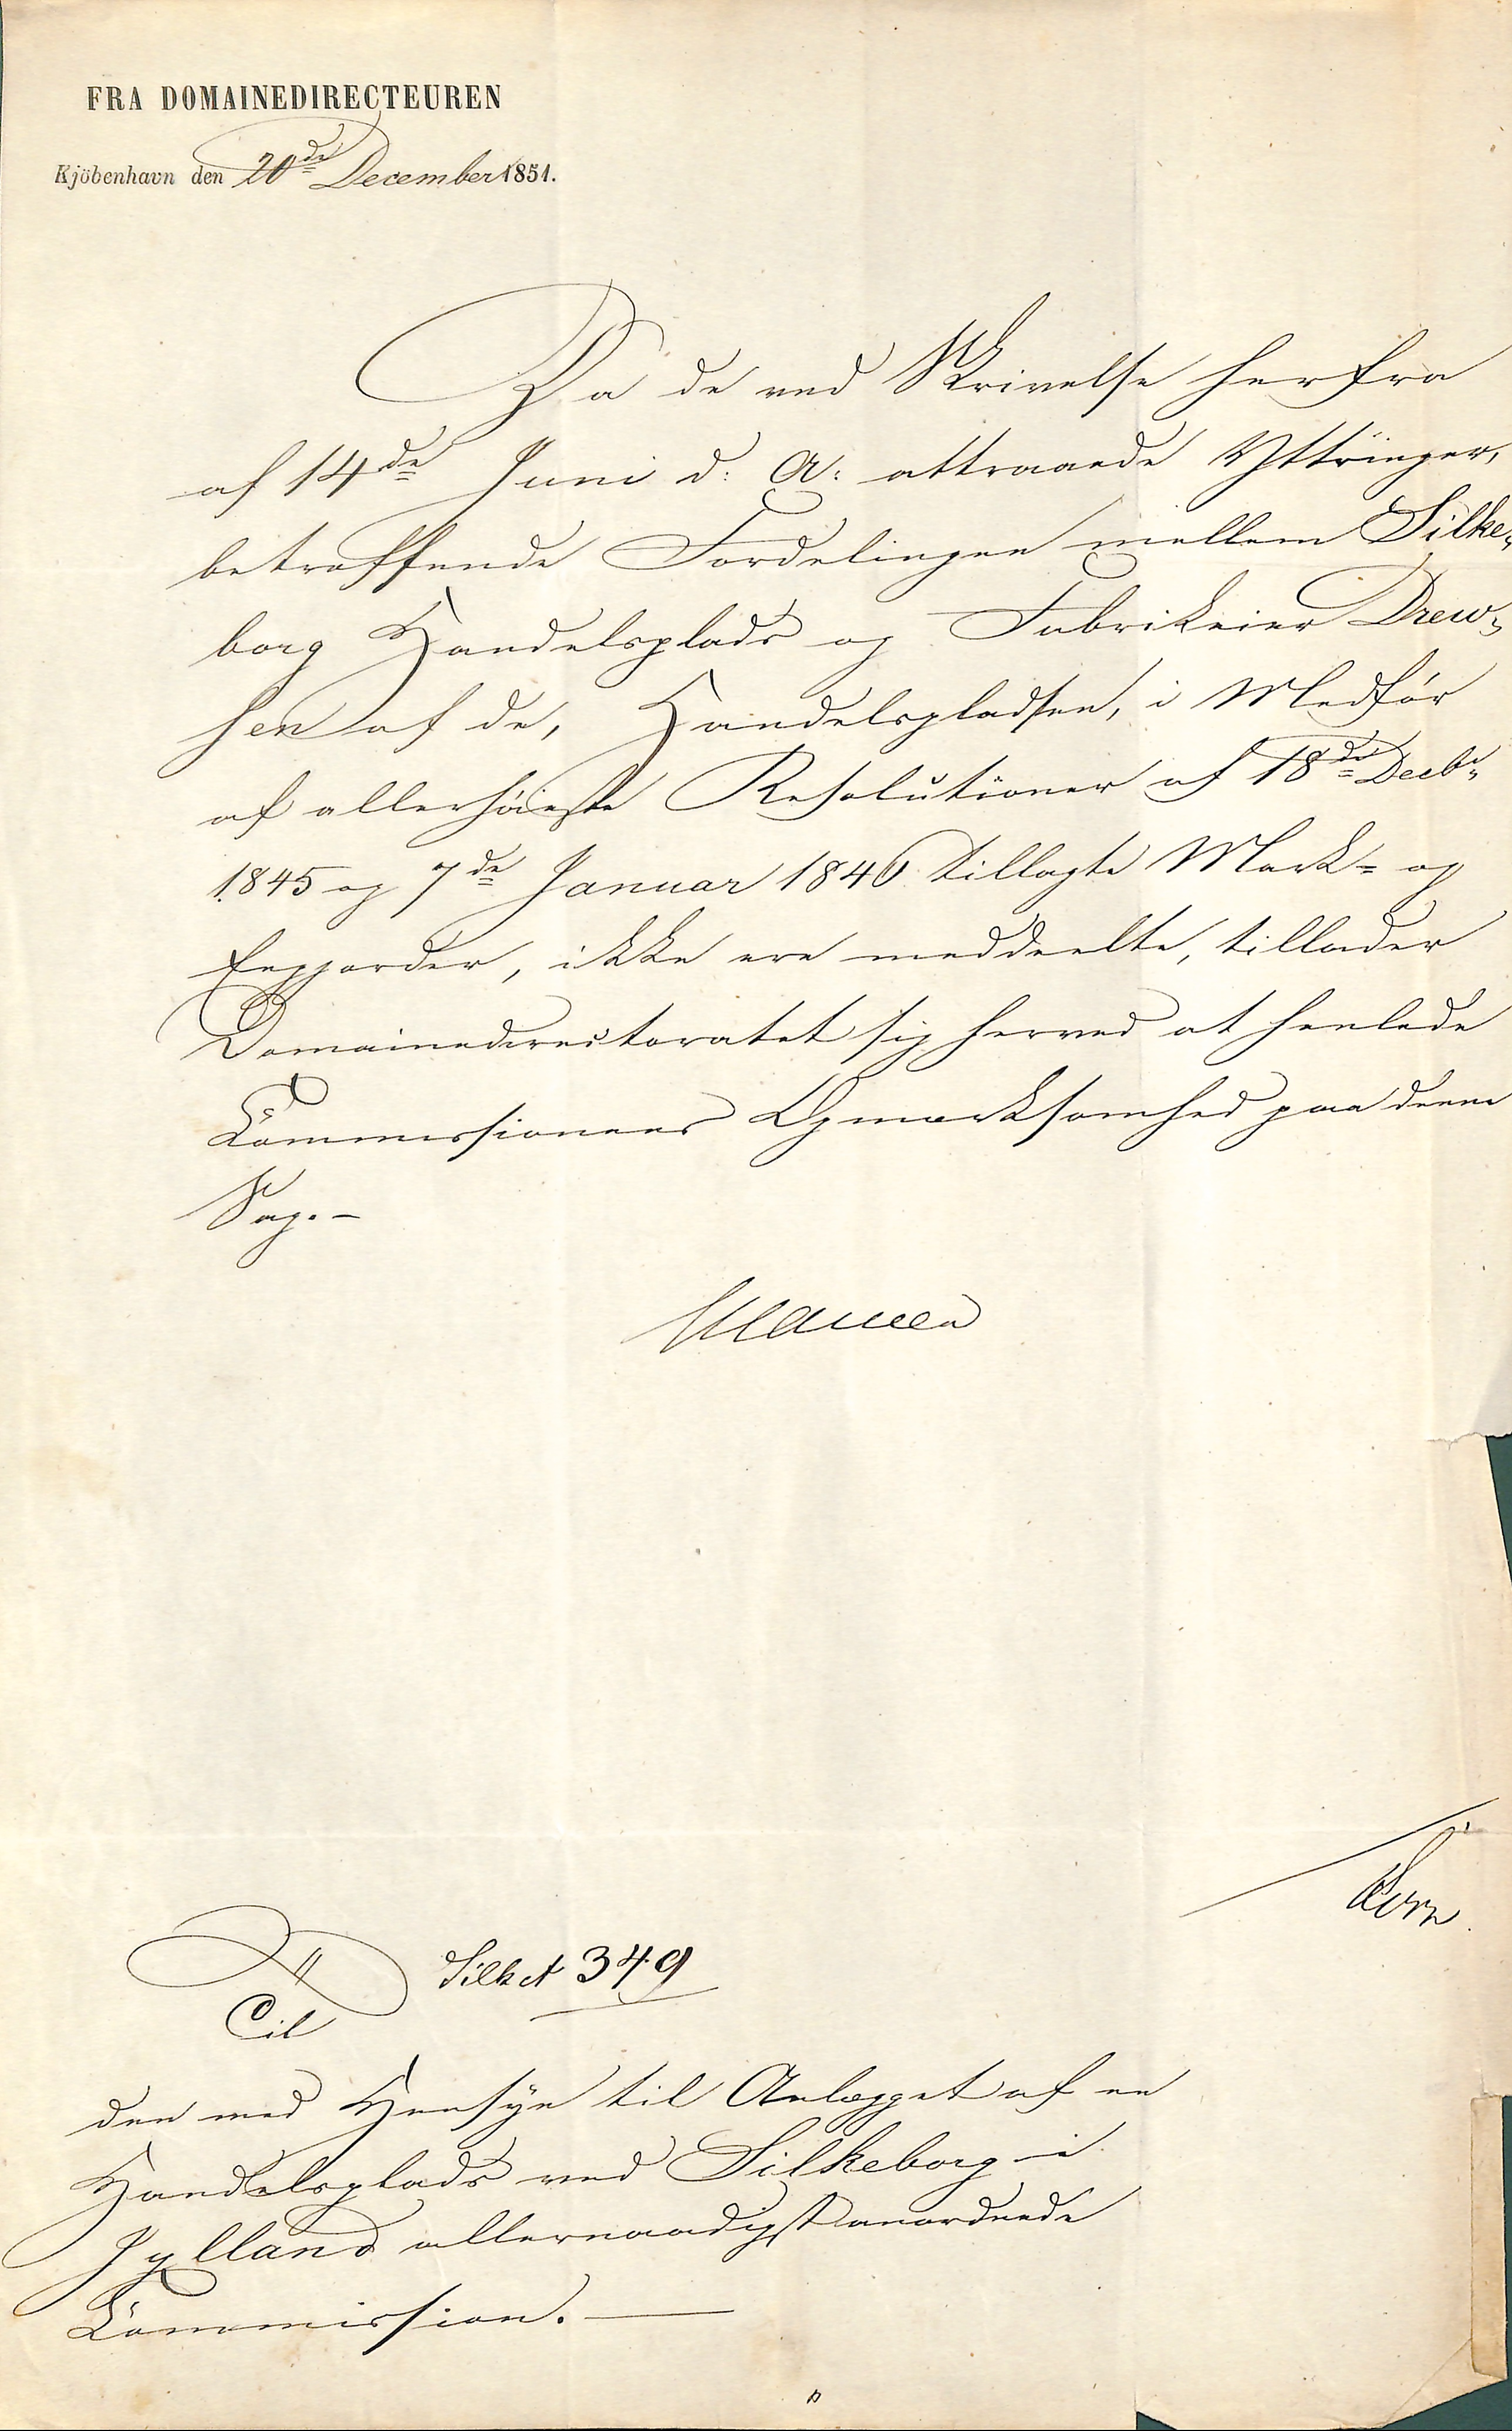 FRA DOMAINEDIRECTEUREN
Kjöbenhavn den 20de December 1851.
Da de ved Skrivelse herfra
af 14de Juni d: A: attraaede Yttringer,
betræffende Fordelingen mellem Silke-
borg Handelsplads og Fabrikeier Drew-
sen af de, Handelspladsen, i Medför
af allerhöieste Resolutioner af 18de Decbr
1845 og 7de Januar 1846 tillagte Mark- og
Engjorder, ikke ere meddeelte, tillader
Domainedirectoratet sig herved at henlede
Commissionens Opmærksomhed paa denne
Sag. -
Silket 349
Til
den med Hensyn til Anlægget af en
Handelsplads ved Silkeborg i
Jylland allernaadigst anordnede
Commission. -